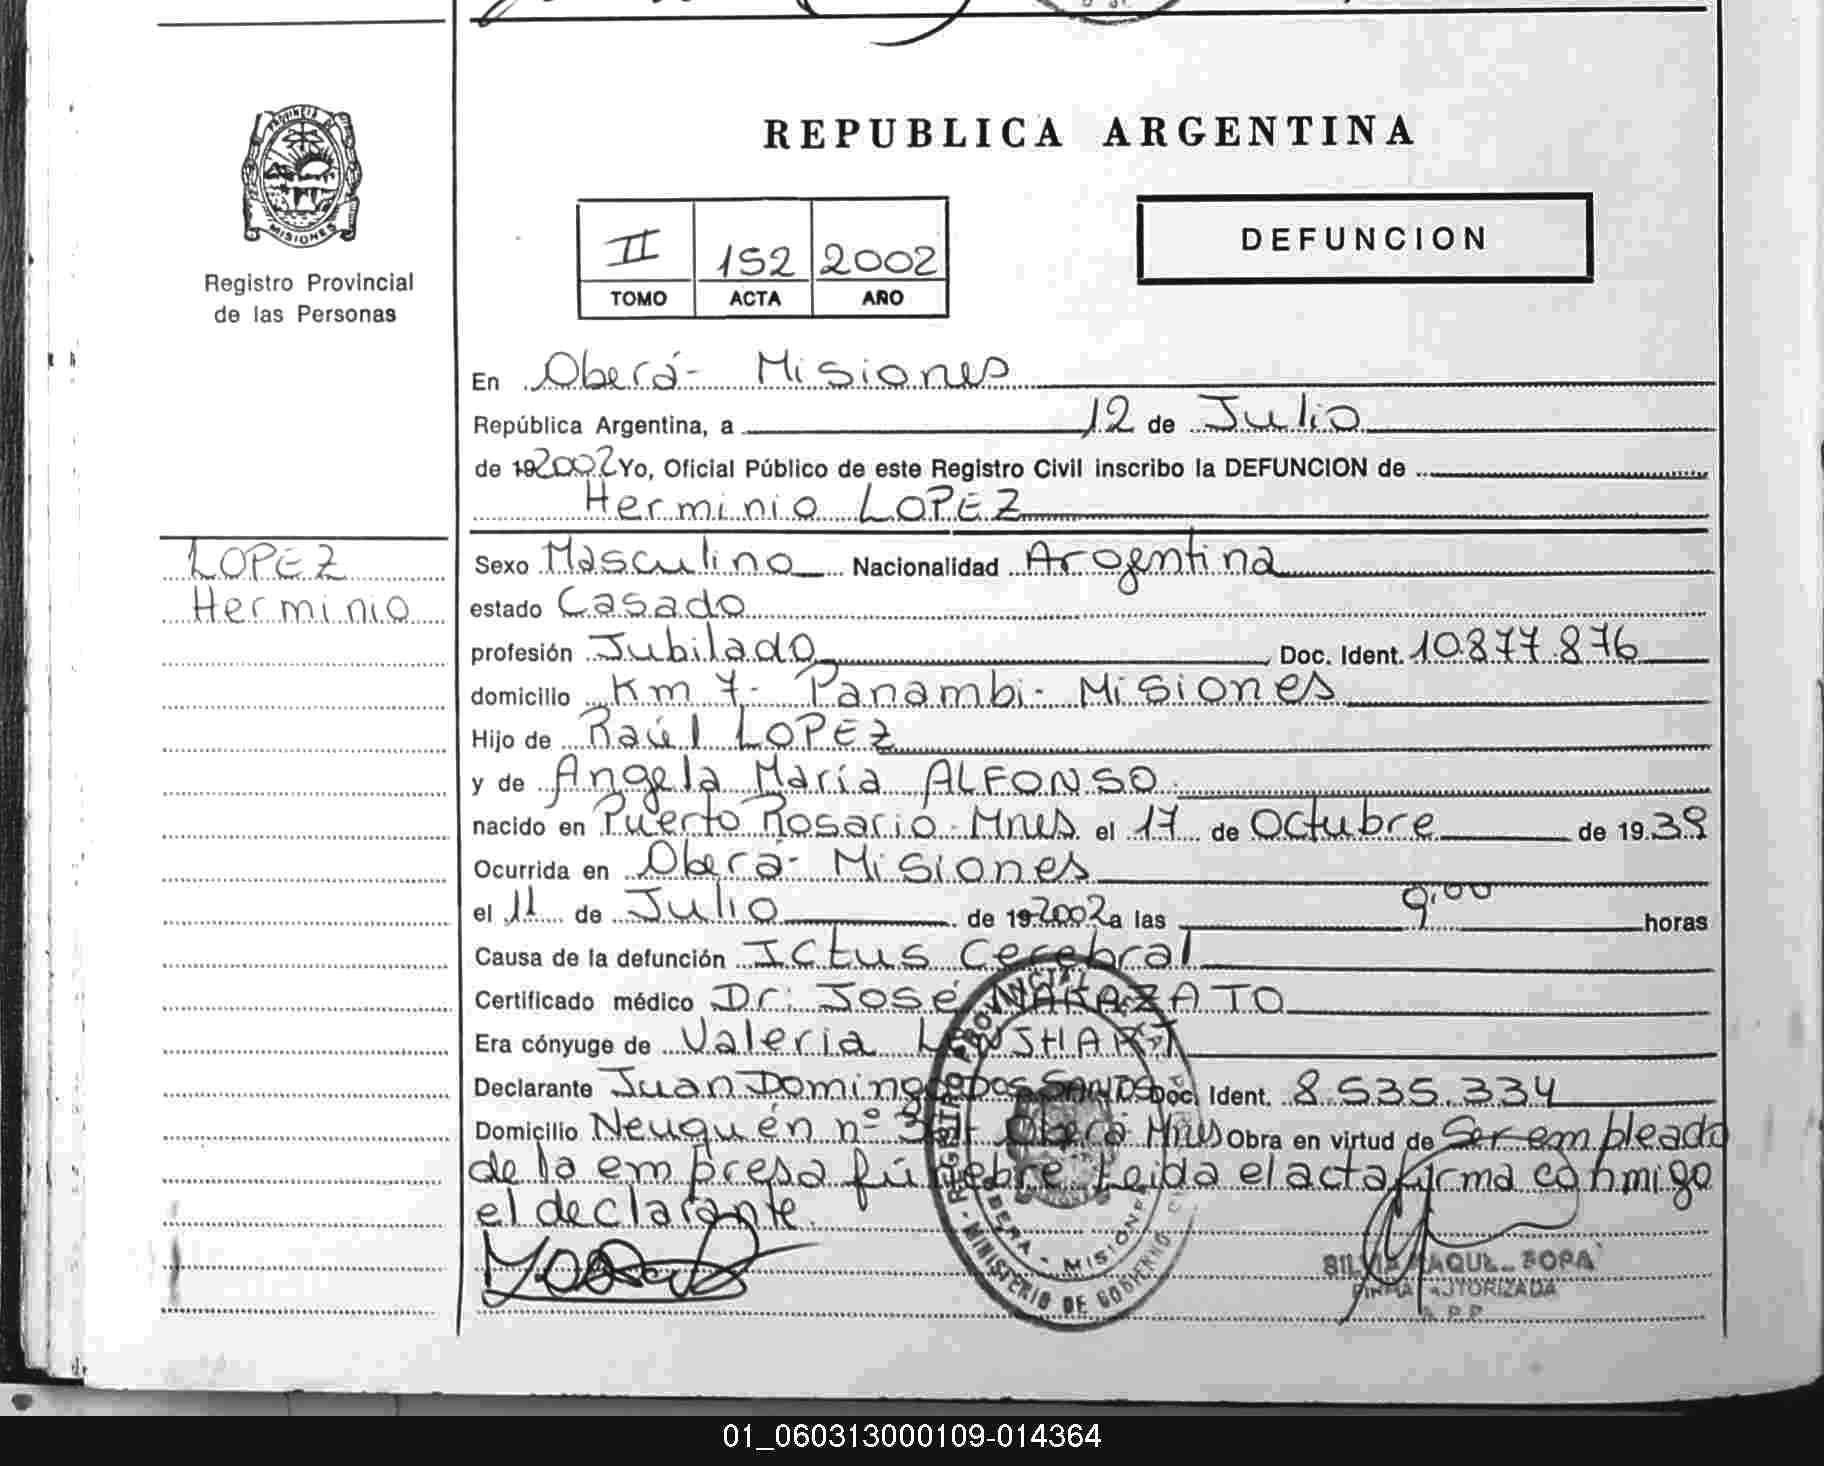 REPUBLICA ARGENTINA
PROVINCIA DE
MISIONES
Registro Provincial
de las Personas
II 152 2002
TOMO ACTA AÑO
DEFUNCION
En Oberá - Misiones
República Argentina, a 12 de Julio
de 19 2002 Yo, Oficial Público de este Registro Civil inscribo la DEFUNCION de
Herminio LOPEZ
LOPEZ
Herminio
Sexo Masculino Nacionalidad Argentina
estado Casado
profesión Jubilado Doc. Ident. 10.877.876
domicilio Km 7- Panambi- Misiones
Hijo de Raúl LOPEZ
y de Angela María ALFONSO
nacido en Puerto Rosario - Mnes el 17 de Octubre de 1939
Ocurrida en Oberá - Misiones
el 11 de Julio de 19 2002 a las 9.00 horas
Causa de la defunción Ictus Cerebral
Certificado médico Dr. José NAKAZATO
Era cónyuge de Valeria
Declarante Juan Domingo Dos SANTOS Doc. Ident. 8.535.334
Domicilio Neuquén nº Oberá Mnes Obra en virtud de Ser empleado
de la empresa fúnebre. Leida el acta firma conmigo
el declarante.
REGISTRO PROVINCIAL DE LAS
OBERA - MISIONES
MINISTERIO DE GOBIERNO
SILVIA RAQUEL SOPA
FIRMA AUTORIZADA
R.P.P.
01_060313000109-014364